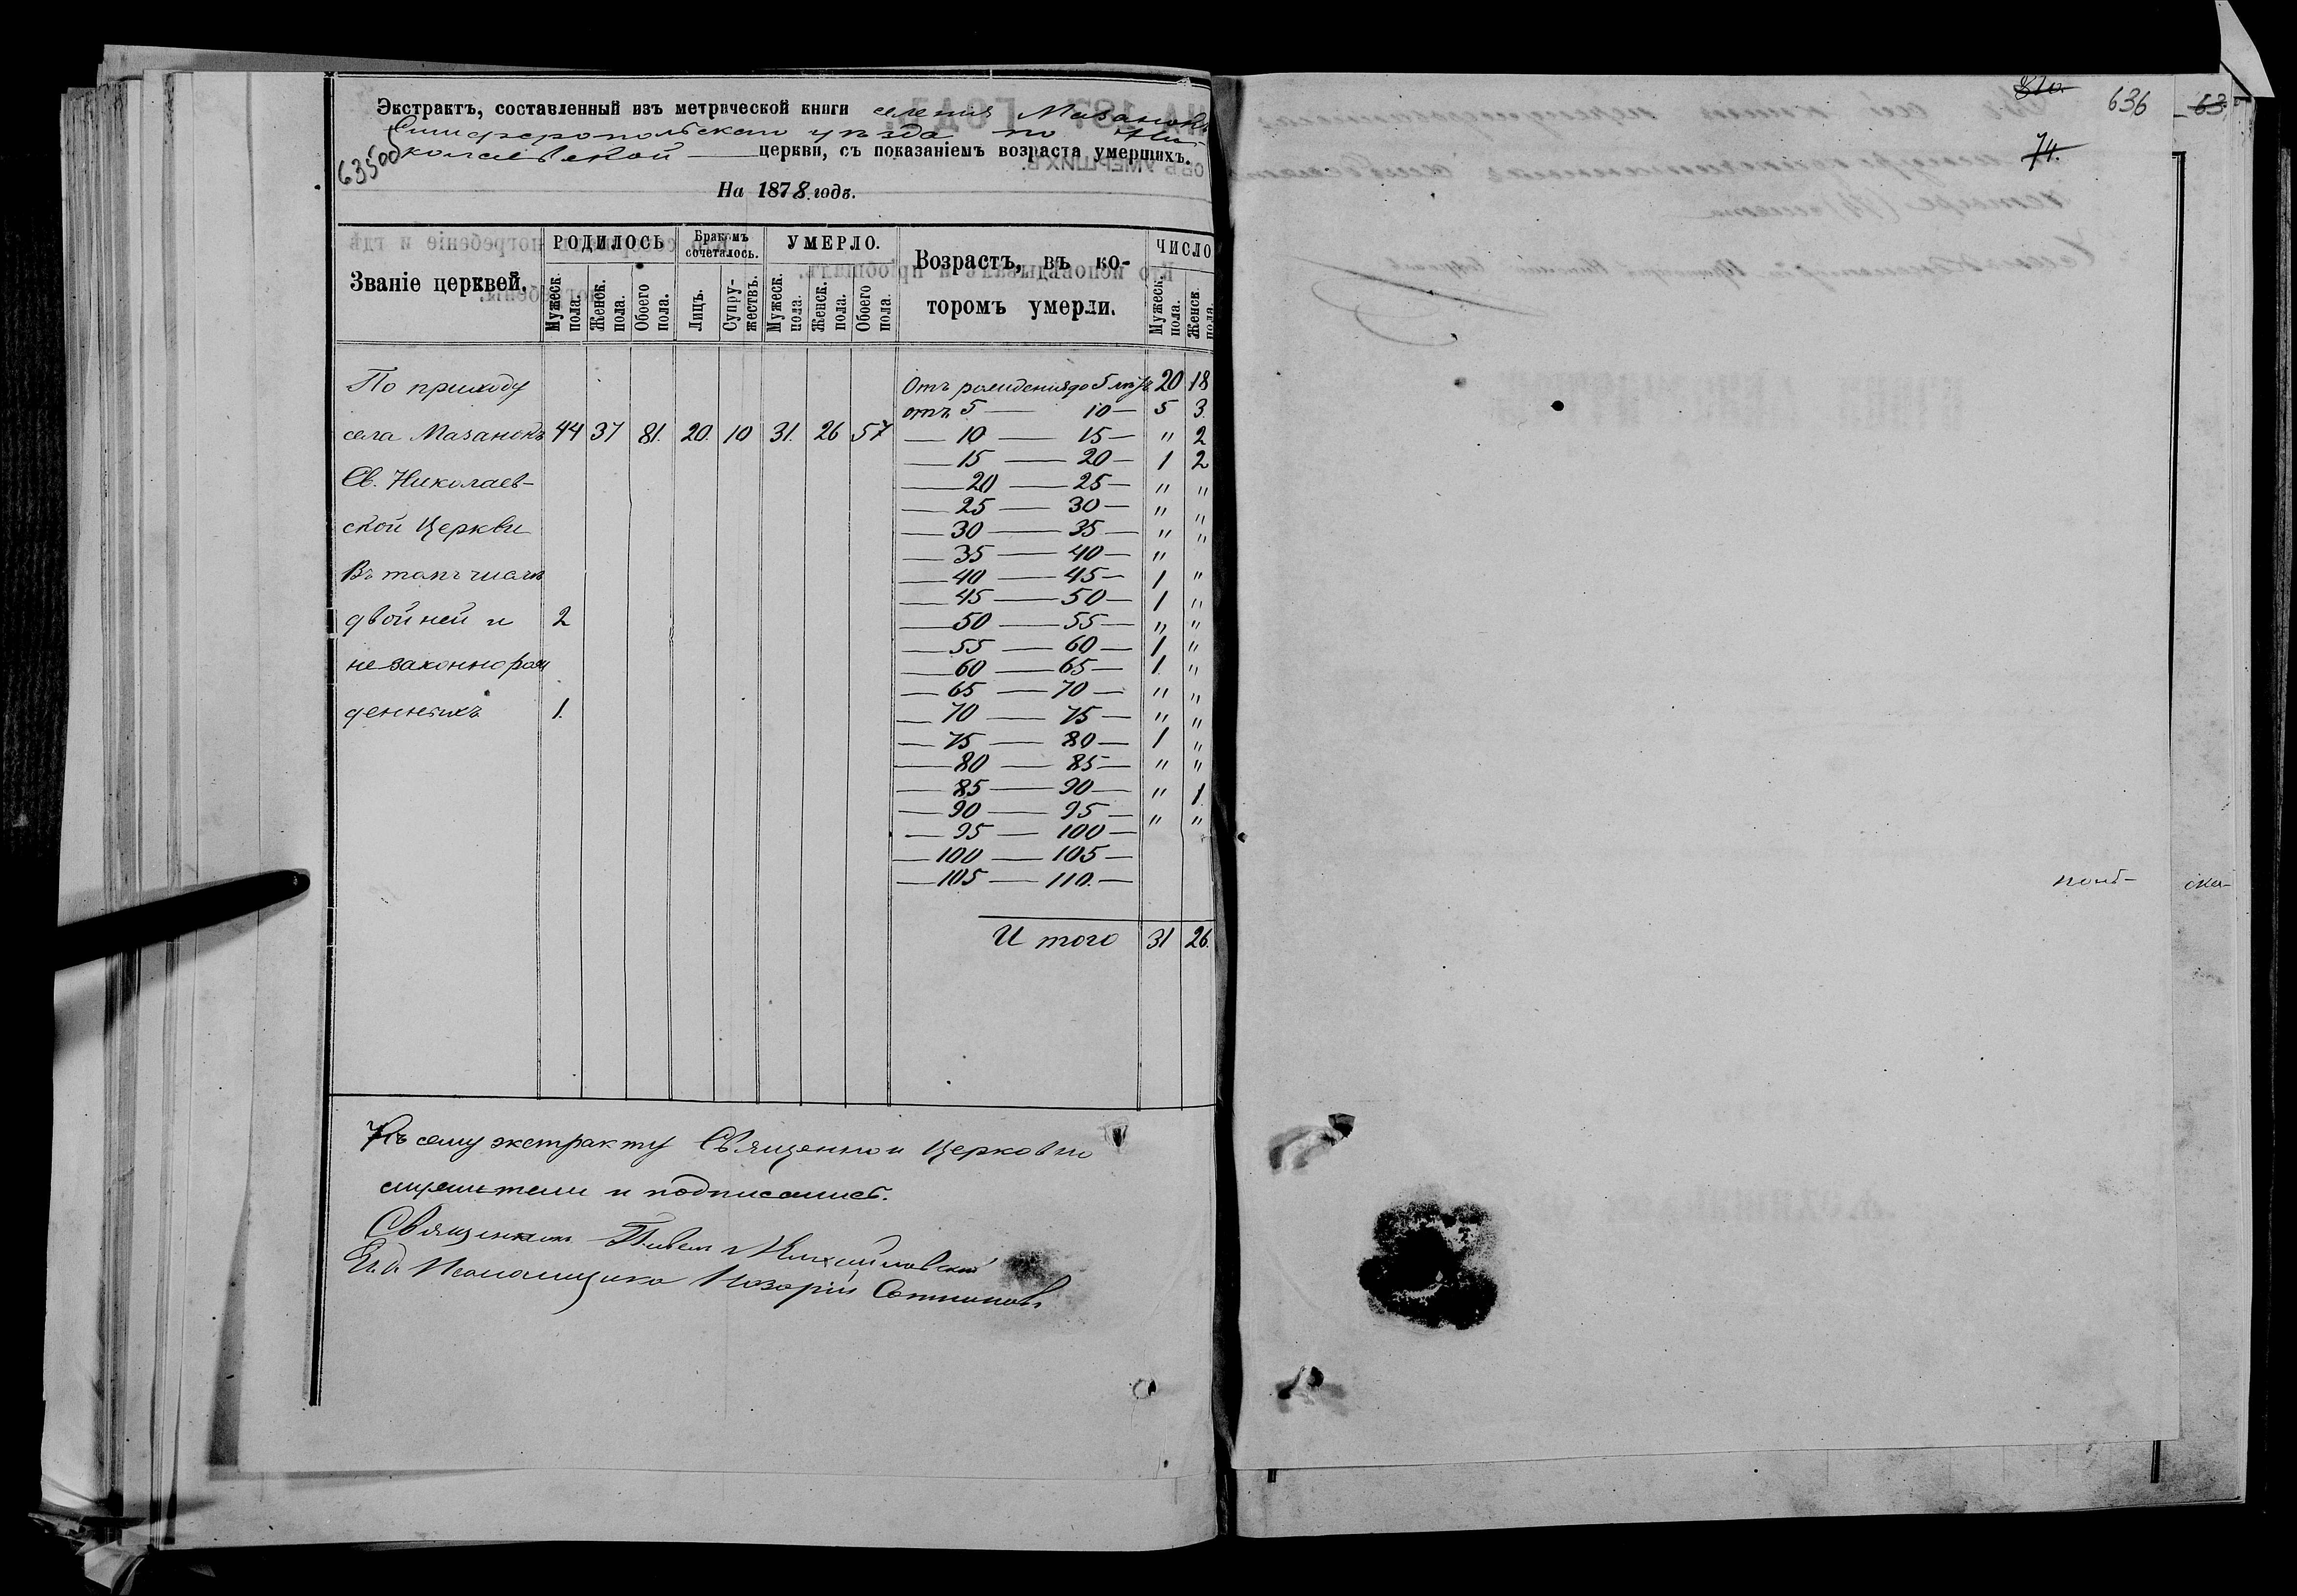 Экстрактъ, составленный изъ метрической книги селенія Мазанокъ
Симферопольскаго уѣзда по Ни-
колаевской церкви, съ показаніемъ возраста умершихъ.
635об
На 1878 годъ.
Званіе церквей. РОДИЛОСЬ Бракомъ сочеталось. УМЕРЛО. Возрастъ, въ ко- ЧИСЛО
Мужеск. пола. Женск. пола. Обоего пола. Лицъ. Супру-жествъ. Мужеск. пола. Женск. пола. Обоего пола. торомъ умерли. Мужеск. пола. Женск. пола.
По приходу
села Мазанокъ 44 37 81. 20. 10 31. 26 57
Св. Николаев-
ской Церкви
Въ томъ числѣ
двойней и 2
незаконнорож
денныхъ 1.
Отъ рожденія до 5 лѣтъ 20 18
отъ 5 — 10 — 5 3.
— 10 — 15 — " 2
— 15 — 20 — 1 2
— 20 — 25 — " "
— 25 — 30 — " "
— 30 — 35 — " "
— 35 — 40 — "
— 40 — 45 — 1 "
— 45 — 50 — 1 "
— 50 — 55 — " "
— 55 — 60 — 1 "
— 60 — 65 — 1. "
— 65 — 70 — " "
— 70 — 75 — " "
— 75 — 80 — 1 "
— 80 — 85 — " "
— 85 — 90 — " 1.
— 90 — 95 — " "
— 95 — 100 —
— 100 — 105 —
— 105 — 110. —
И того 31 26.
Къ сему экстракту Священно и Церковно
служители и подписались.
Священникъ Павелъ Михайловскій
И. д. Псаломщика Назарій
636
74.